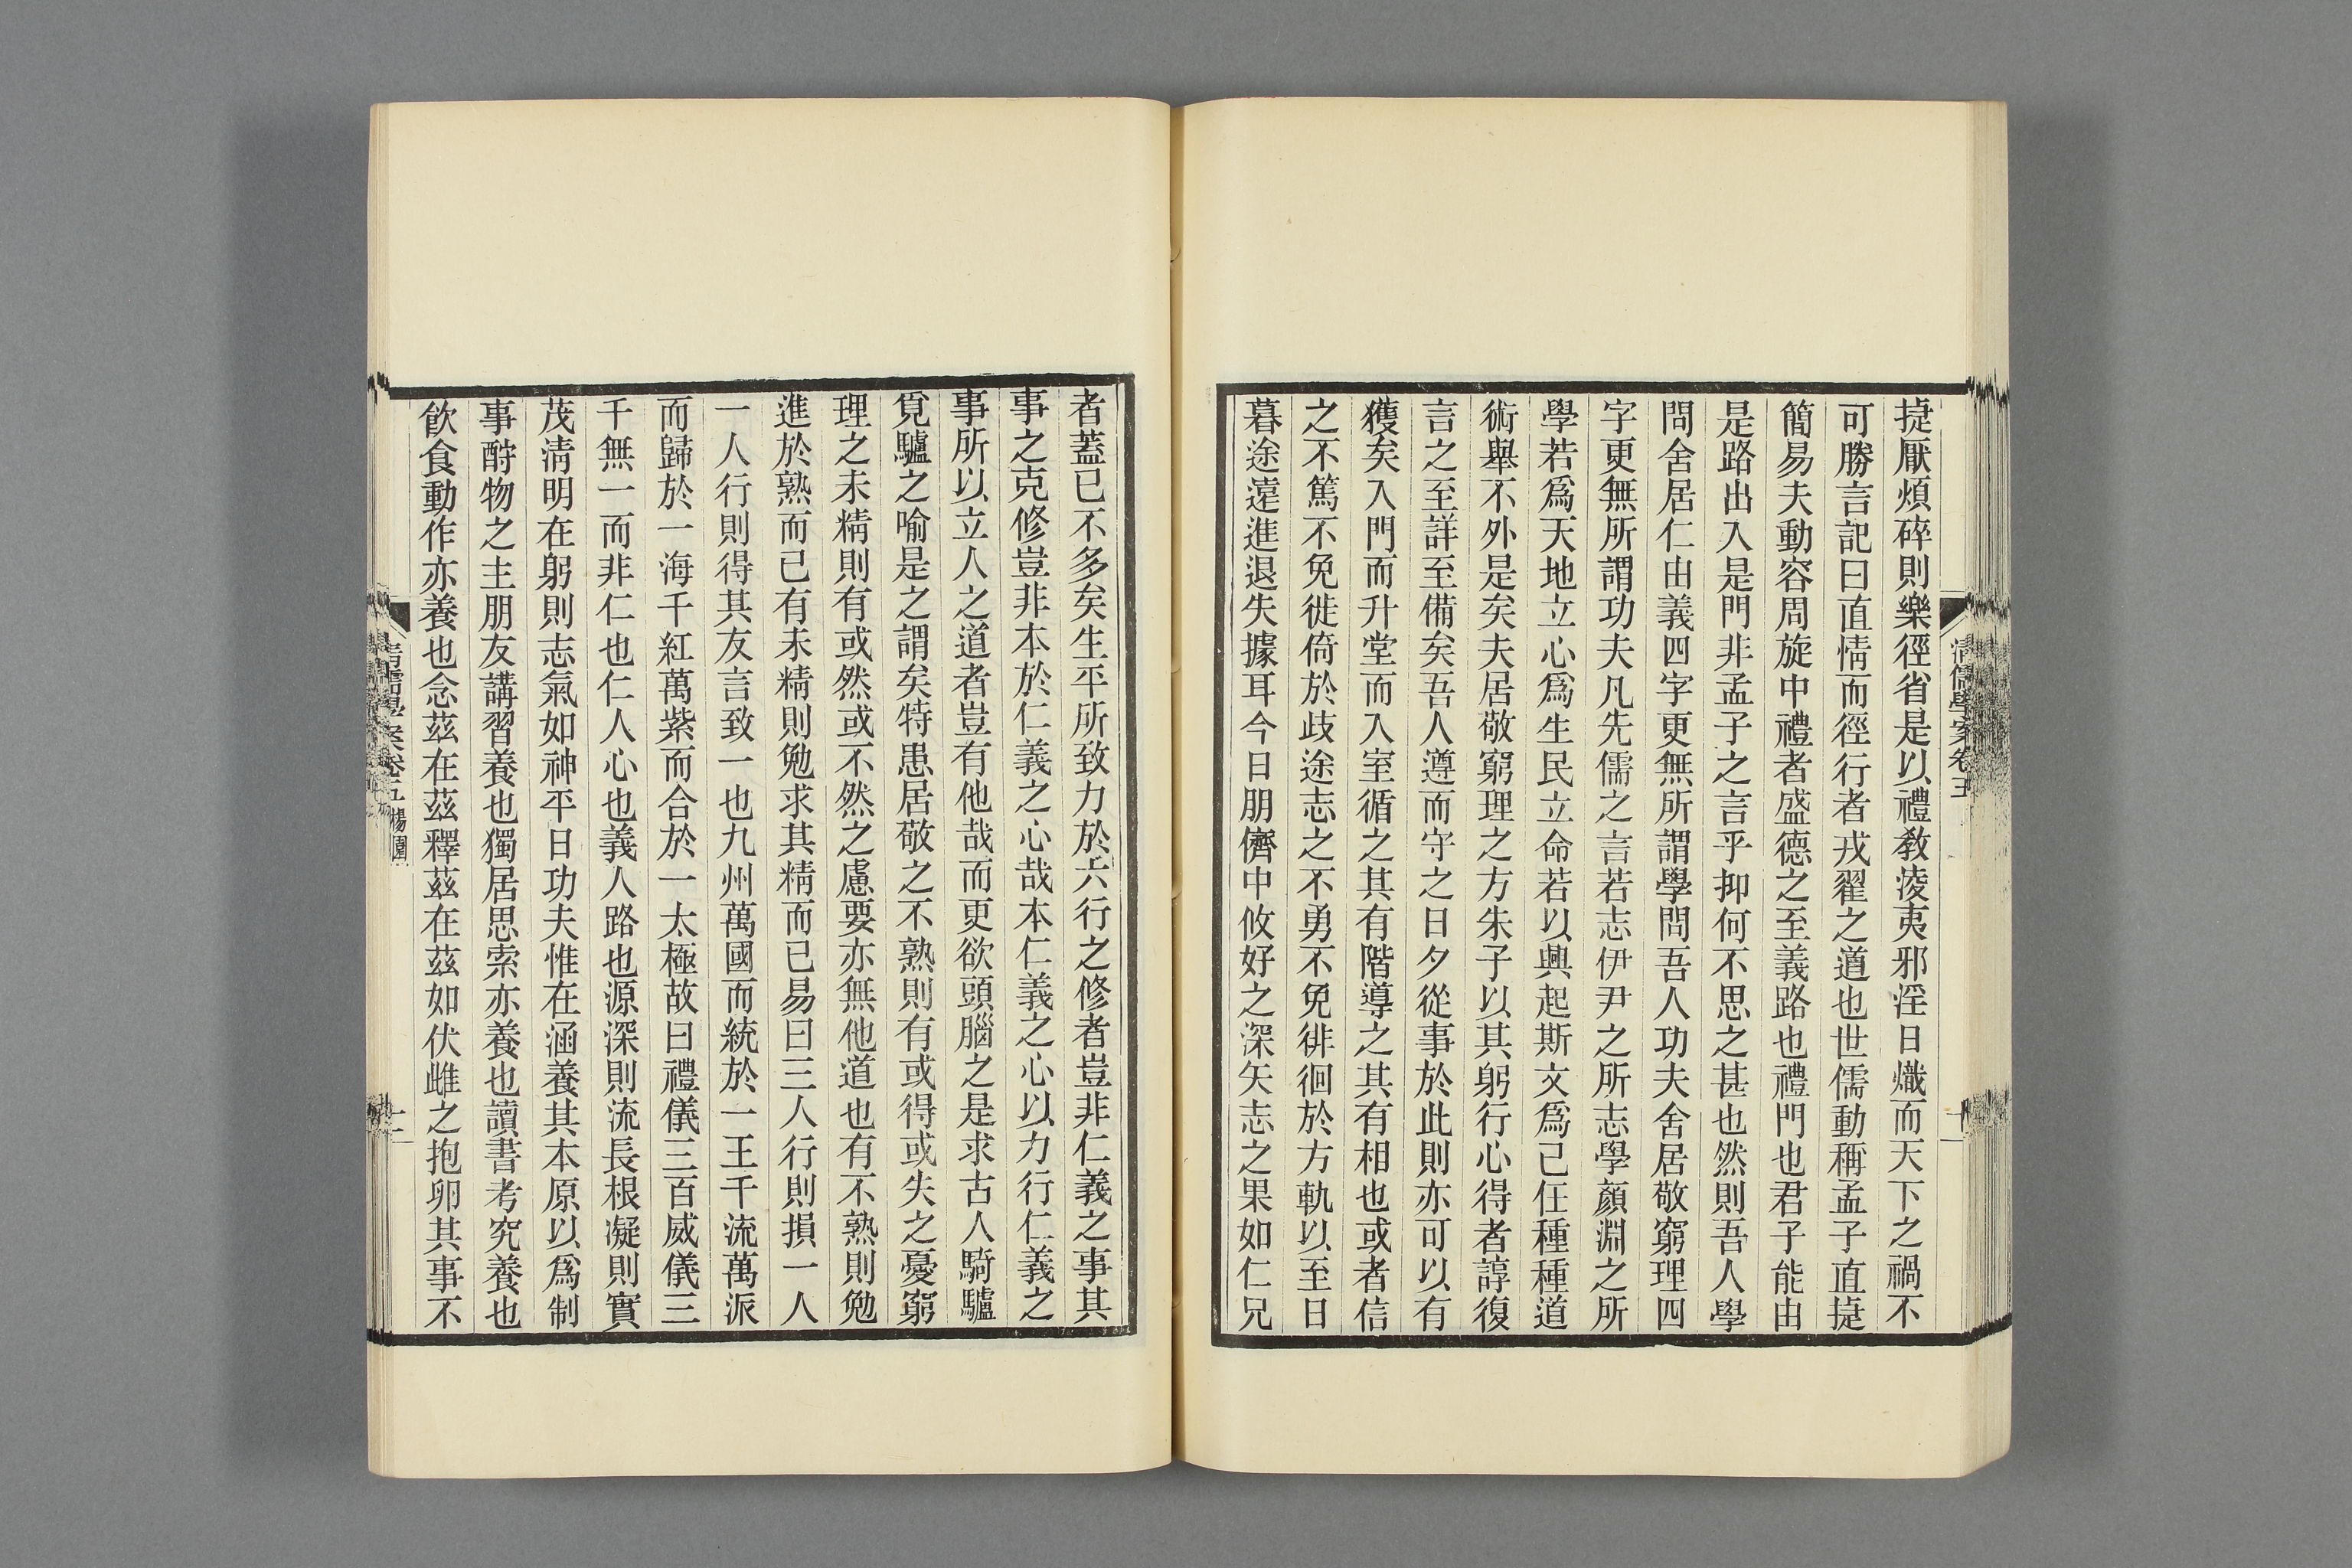 捷厭煩碎則樂徑省是以禮教淩夷邪淫日熾而天下之禍不
可勝言記曰直情而徑行者戎翟之道也世儒動稱孟子直捷
簡易夫動容周旋中禮者盛德之至義路也禮門也君子能由
是路出入是門非孟子之言乎抑何不思之甚也然則吾人學
問舍居仁由義四字更無所謂學問吾人功夫舍居敬窮理四
字更無所謂功夫凡先儒之言若志伊尹之所志學顏淵之所
學若爲天地立心爲生民立命若以興起斯文爲己任種種道
術舉不外是矣夫居敬窮理之方朱子以其躬行心得者諄復
言之至詳至備矣吾人遵而守之日夕從事於此則亦可以有
獲矣入門而升堂而入室循之其有階導之其有相也或者信
之不篤不免徙倚於歧途志之不勇不免徘徊於方軌以至日
暮途遠進退失據耳今日朋儕中攸好之深矢志之果如仁兄
清儒學案卷五
者蓋已不多矣生平所致力於六行之修者豈非仁義之事其
事之克修豈非本於仁義之心哉本仁義之心以力行仁義之
事所以立人之道者豈有他哉而更欲頭腦之是求古人騎驢
覓驢之喻是之謂矣特患居敬之不熟則有或得或失之憂窮
理之未精則有或然或不然之慮要亦無他道也有不熟則勉
進於熟而已有未精則勉求其精而已易曰三人行則損一人
一人行則得其友言致一也九州萬國而統於一王千流萬派
而歸於一海千紅萬紫而合於一太極故曰禮儀三百威儀三
千無一而非仁也仁人心也義人路也源深則流長根凝則實
茂清明在躬則志氣如神平日功夫惟在涵養其本原以爲制
事酧物之主朋友講習養也獨居思索亦養也讀書考究養也
飲食動作亦養也念茲在茲釋茲在茲如伏雌之抱卵其事不
清儒學案卷五 楊園